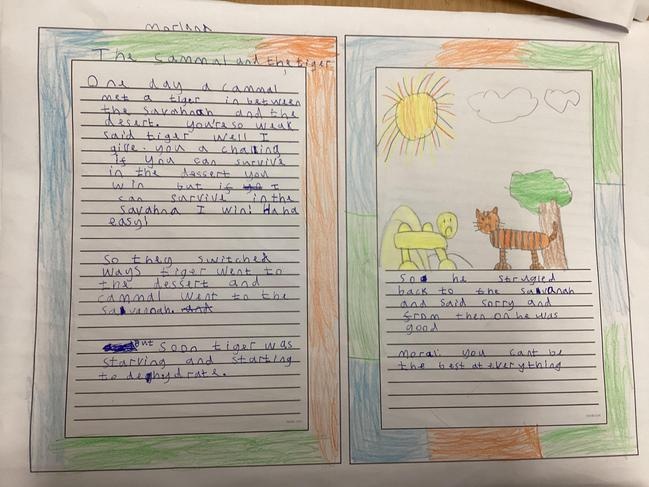 morland
The cammal and the tiger
One day a cammal
met a tiger in between
the savahnah and the
desert. you're so weak
said tiger well I
give you a challing
if you can survive
in the dessert you
win but if I
can survive in the
savahna I win! Ha ha
easy!
So they switched
ways tiger went to
the dessert and
cammal went to the
savannah. and
but Soon tiger was
starving and starting
to dehydrate.
So he strugled
back to the Savanah
and said sorry and
from then on he was
good
moral: you cant be
the best at everything